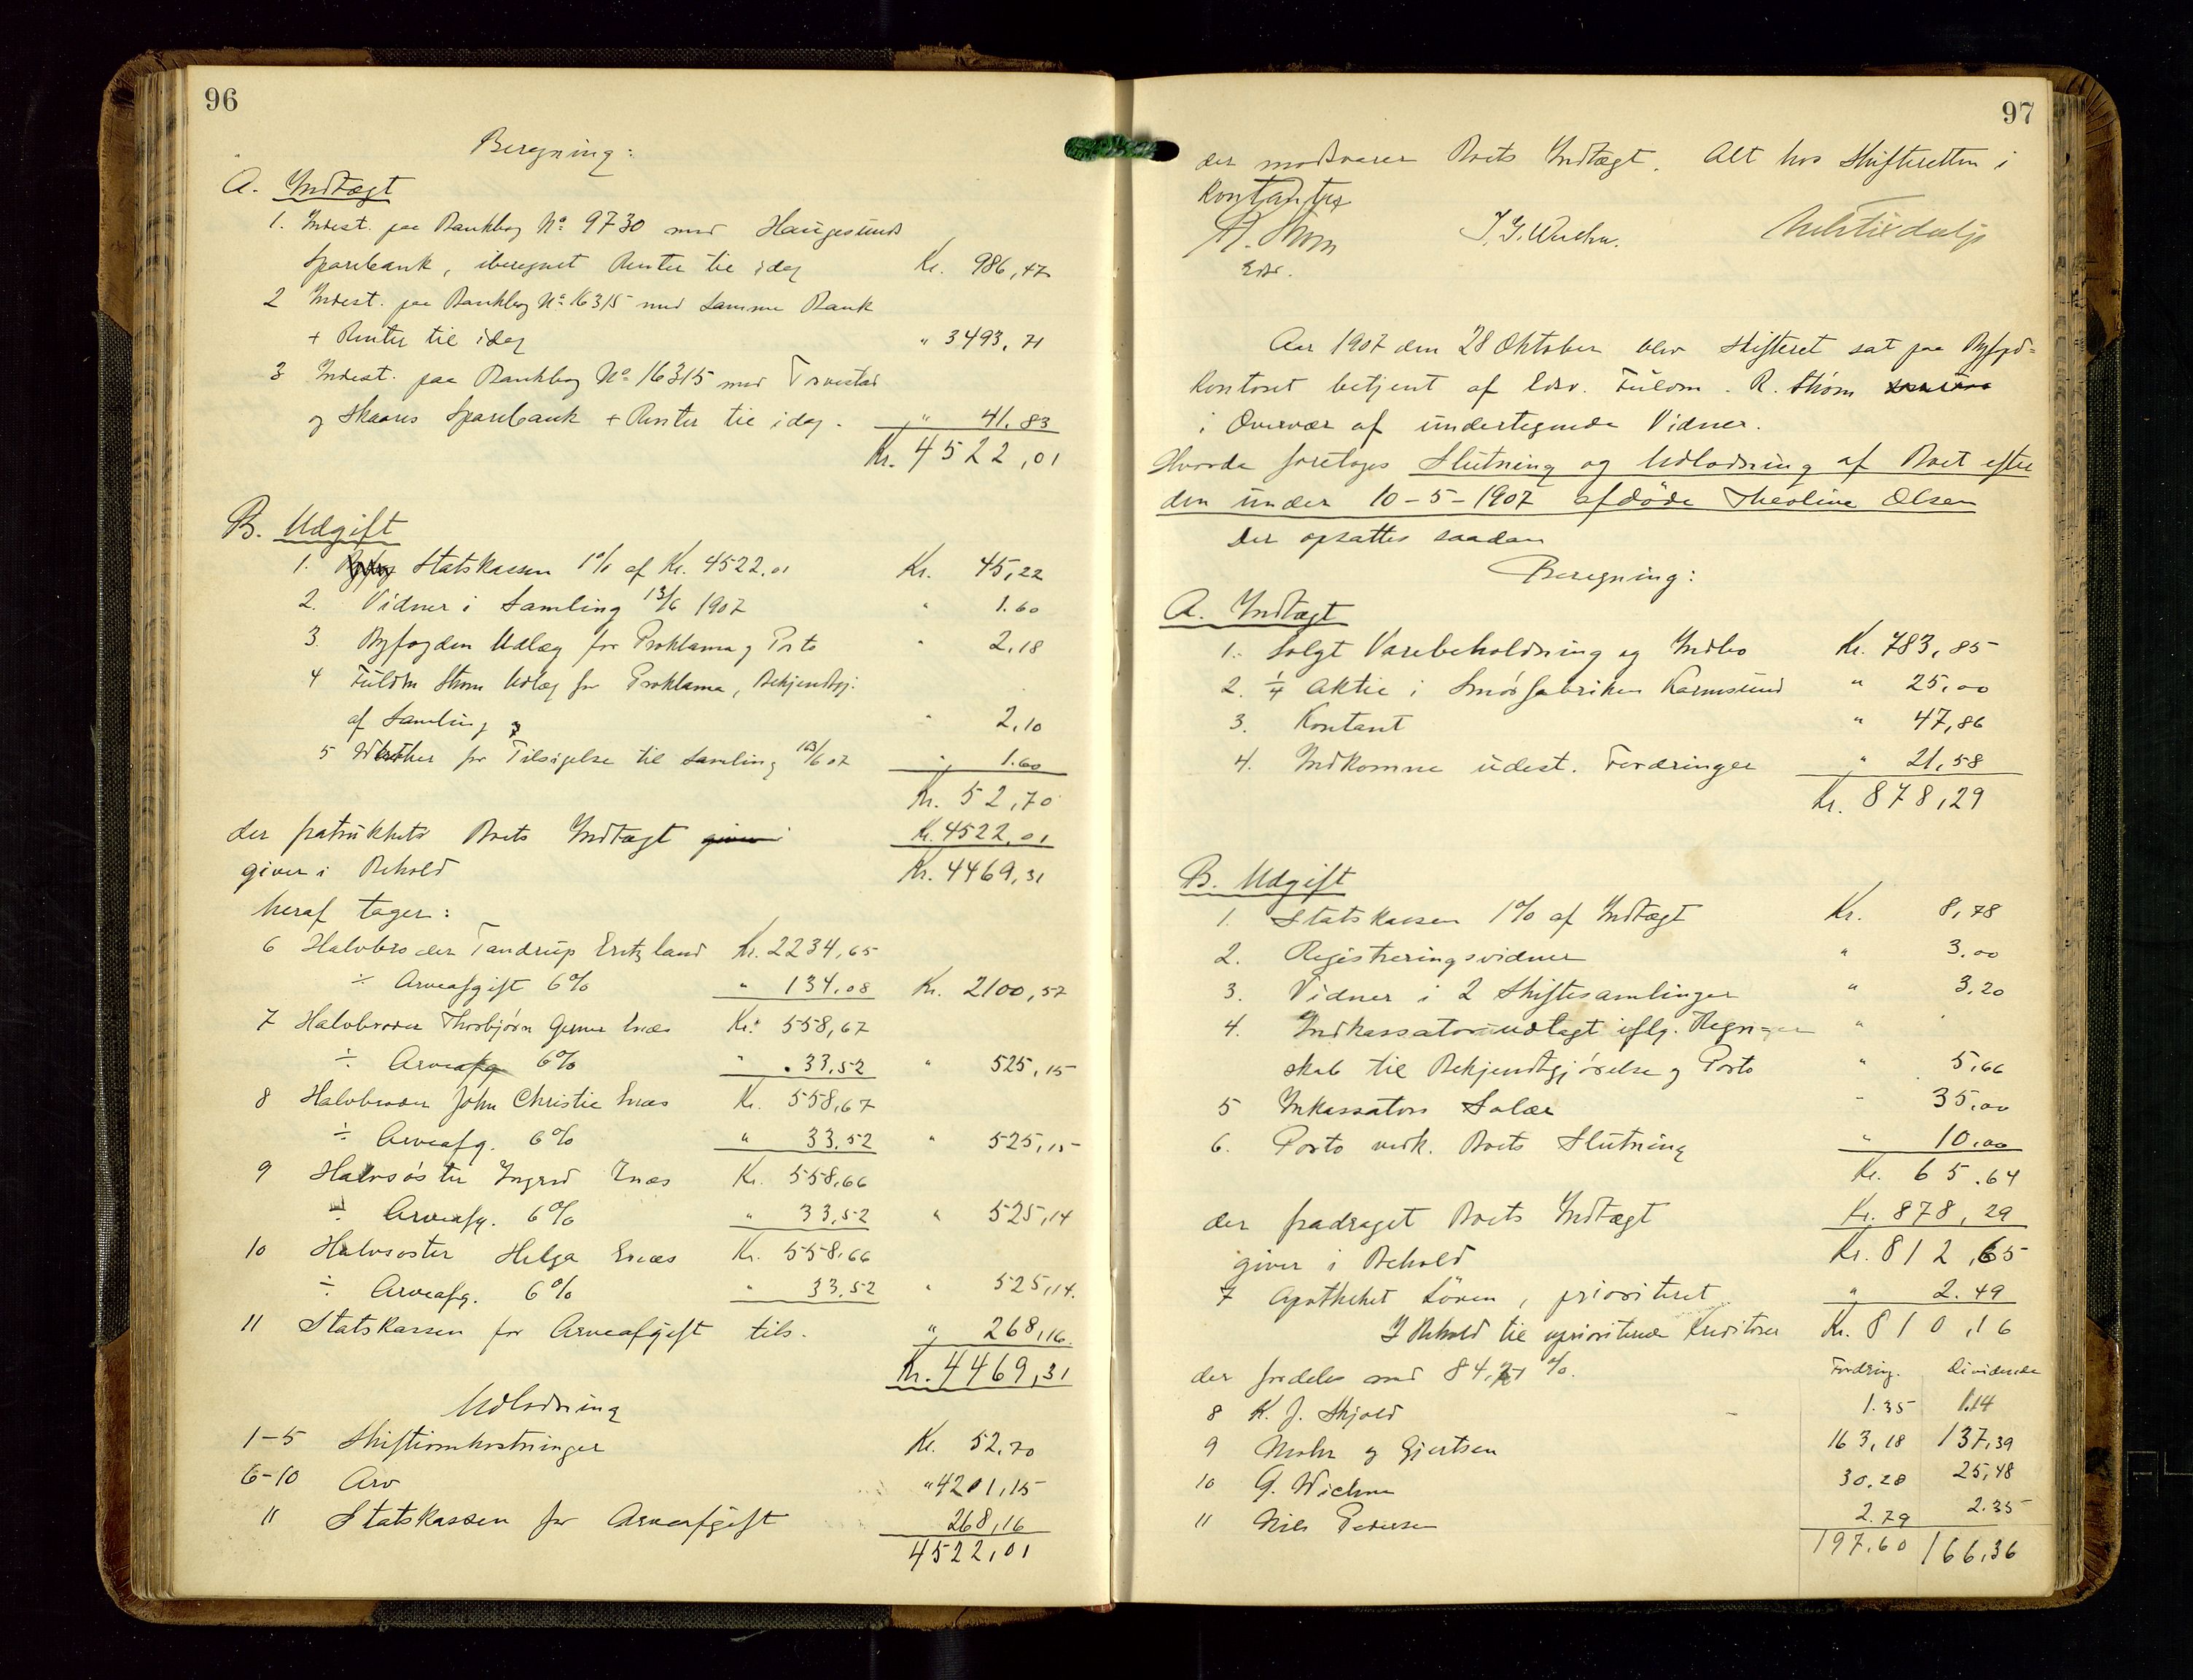 96
Beregning:
A. Indtægt
1. Indest. paa Bankbog No 9730 med Haugesunds
Sparebank, iberegnet Renter til idag Kr. 986,47
2 Indest. paa Bankbog No 16315 med samme Bank
+ Renter til idag " 3493,71
3 Indest. paa Bankbog No 16315 med Torvestad
og Skaares Sparebank + Renter til idag. " 41.83
Kr. 4522,01
B. Udgift
1. Statskassen 1% af Kr. 4522.01 Kr. 45,22
2. Vidner i Samling 13/6 1907 " 1.60
3 Byfogden Udlæg for Proklama og Porto " 2,18
4 Fuldm Strøm Udlæg for Proklama, Bekjendtgj.
af Samling " 2,10
5 for Tilsigelse til Samling 13/6 07 " 1.60
Kr. 52,70
der fratrukket Boets Indtægt giver Kr. 4522,01
giver i Behold Kr. 4469,31
heraf tager:
6 Halvbroder Tandrup Kr. 2234,65
÷ Arveafgift 6% " 134,08 Kr. 2100,57
7 Halvbroder Thorbjørn Kr. 558,67
÷ Arveafg 6% " 33,52 " 525,15
8 Halvbroder John Christie Kr. 558,67
÷ Arveafg. 6% " 33,52 " 525,15
9 Halvsøster Ingrid Kr. 558,66
÷ Arveafg. 6% " 33,52 " 525,14
10 Halvsøster Helga Kr. 558,66
÷ Arveafg. 6% " 33,52 " 525,14.
11 Statskassen for Arveafgift tils. " 268,16.
Kr. 4469,31
Udlodning
1-5 Skifteomkostninger Kr. 52,70
6-10 Arv " 4201,15
11 Statskassen for Arveafgift 268,16
4522,01
97
der modsvarer Boets Indtægt. Alt hos Skifteretten i
Kontanter
R. Strøm
Edsv.
Aar 1907 den 28 Oktober blev Skifteret sat paa Byfgd-
kontoret betjent af Edsv. Fuldm. R. Strøm
i Overvær af undertegnede Vidner.
Hvorda foretages Slutning og Udlodning af Boet efter
den under 10-5-1907 afdøde Theoline Olsen
Der opsattes saadan
Beregning:
A. Indtægt
1. Solgt Varebeholdning og Indbo Kr. 783,85
2. 1/4 Aktie i Smørfabriken Karmsund " 25,00
3. Kontant " 47,86
4. Indkomne udest. Fordringer " 21,58
Kr. 878,29
B. Udgift
1. Statskassen 1% af Indtægt Kr. 8,78
2. Registreringsvidner " 3.00
3. Vidner i 2 Skiftesamlinger " 3.20
4. Indkassators udlagt iflg. Regn- "
skab til Bekjendtgjørelse og Porto " 5,66
5 Inkassators Salær " 35,00
6. Porto vedk. Boets Slutning " 10,00
Kr. 65.64
der fradraget Boets Indtægt Kr. 878,29
giver i Behold Kr. 812,65
7 Apotheket Løven, prioriteret " 2.49
I Behold til uprioriterede Kreditorer Kr. 810,16
der fordeles med 84,21 %. Fordring. Dividende
8 K. J. Skjold 1.35 1.14
9 Mohr og Gjertsen 163,18 137,39
10 G. Wichne 30.28 25,48
11 Nils Pedersen 2.79 2.35
197.60 166,36